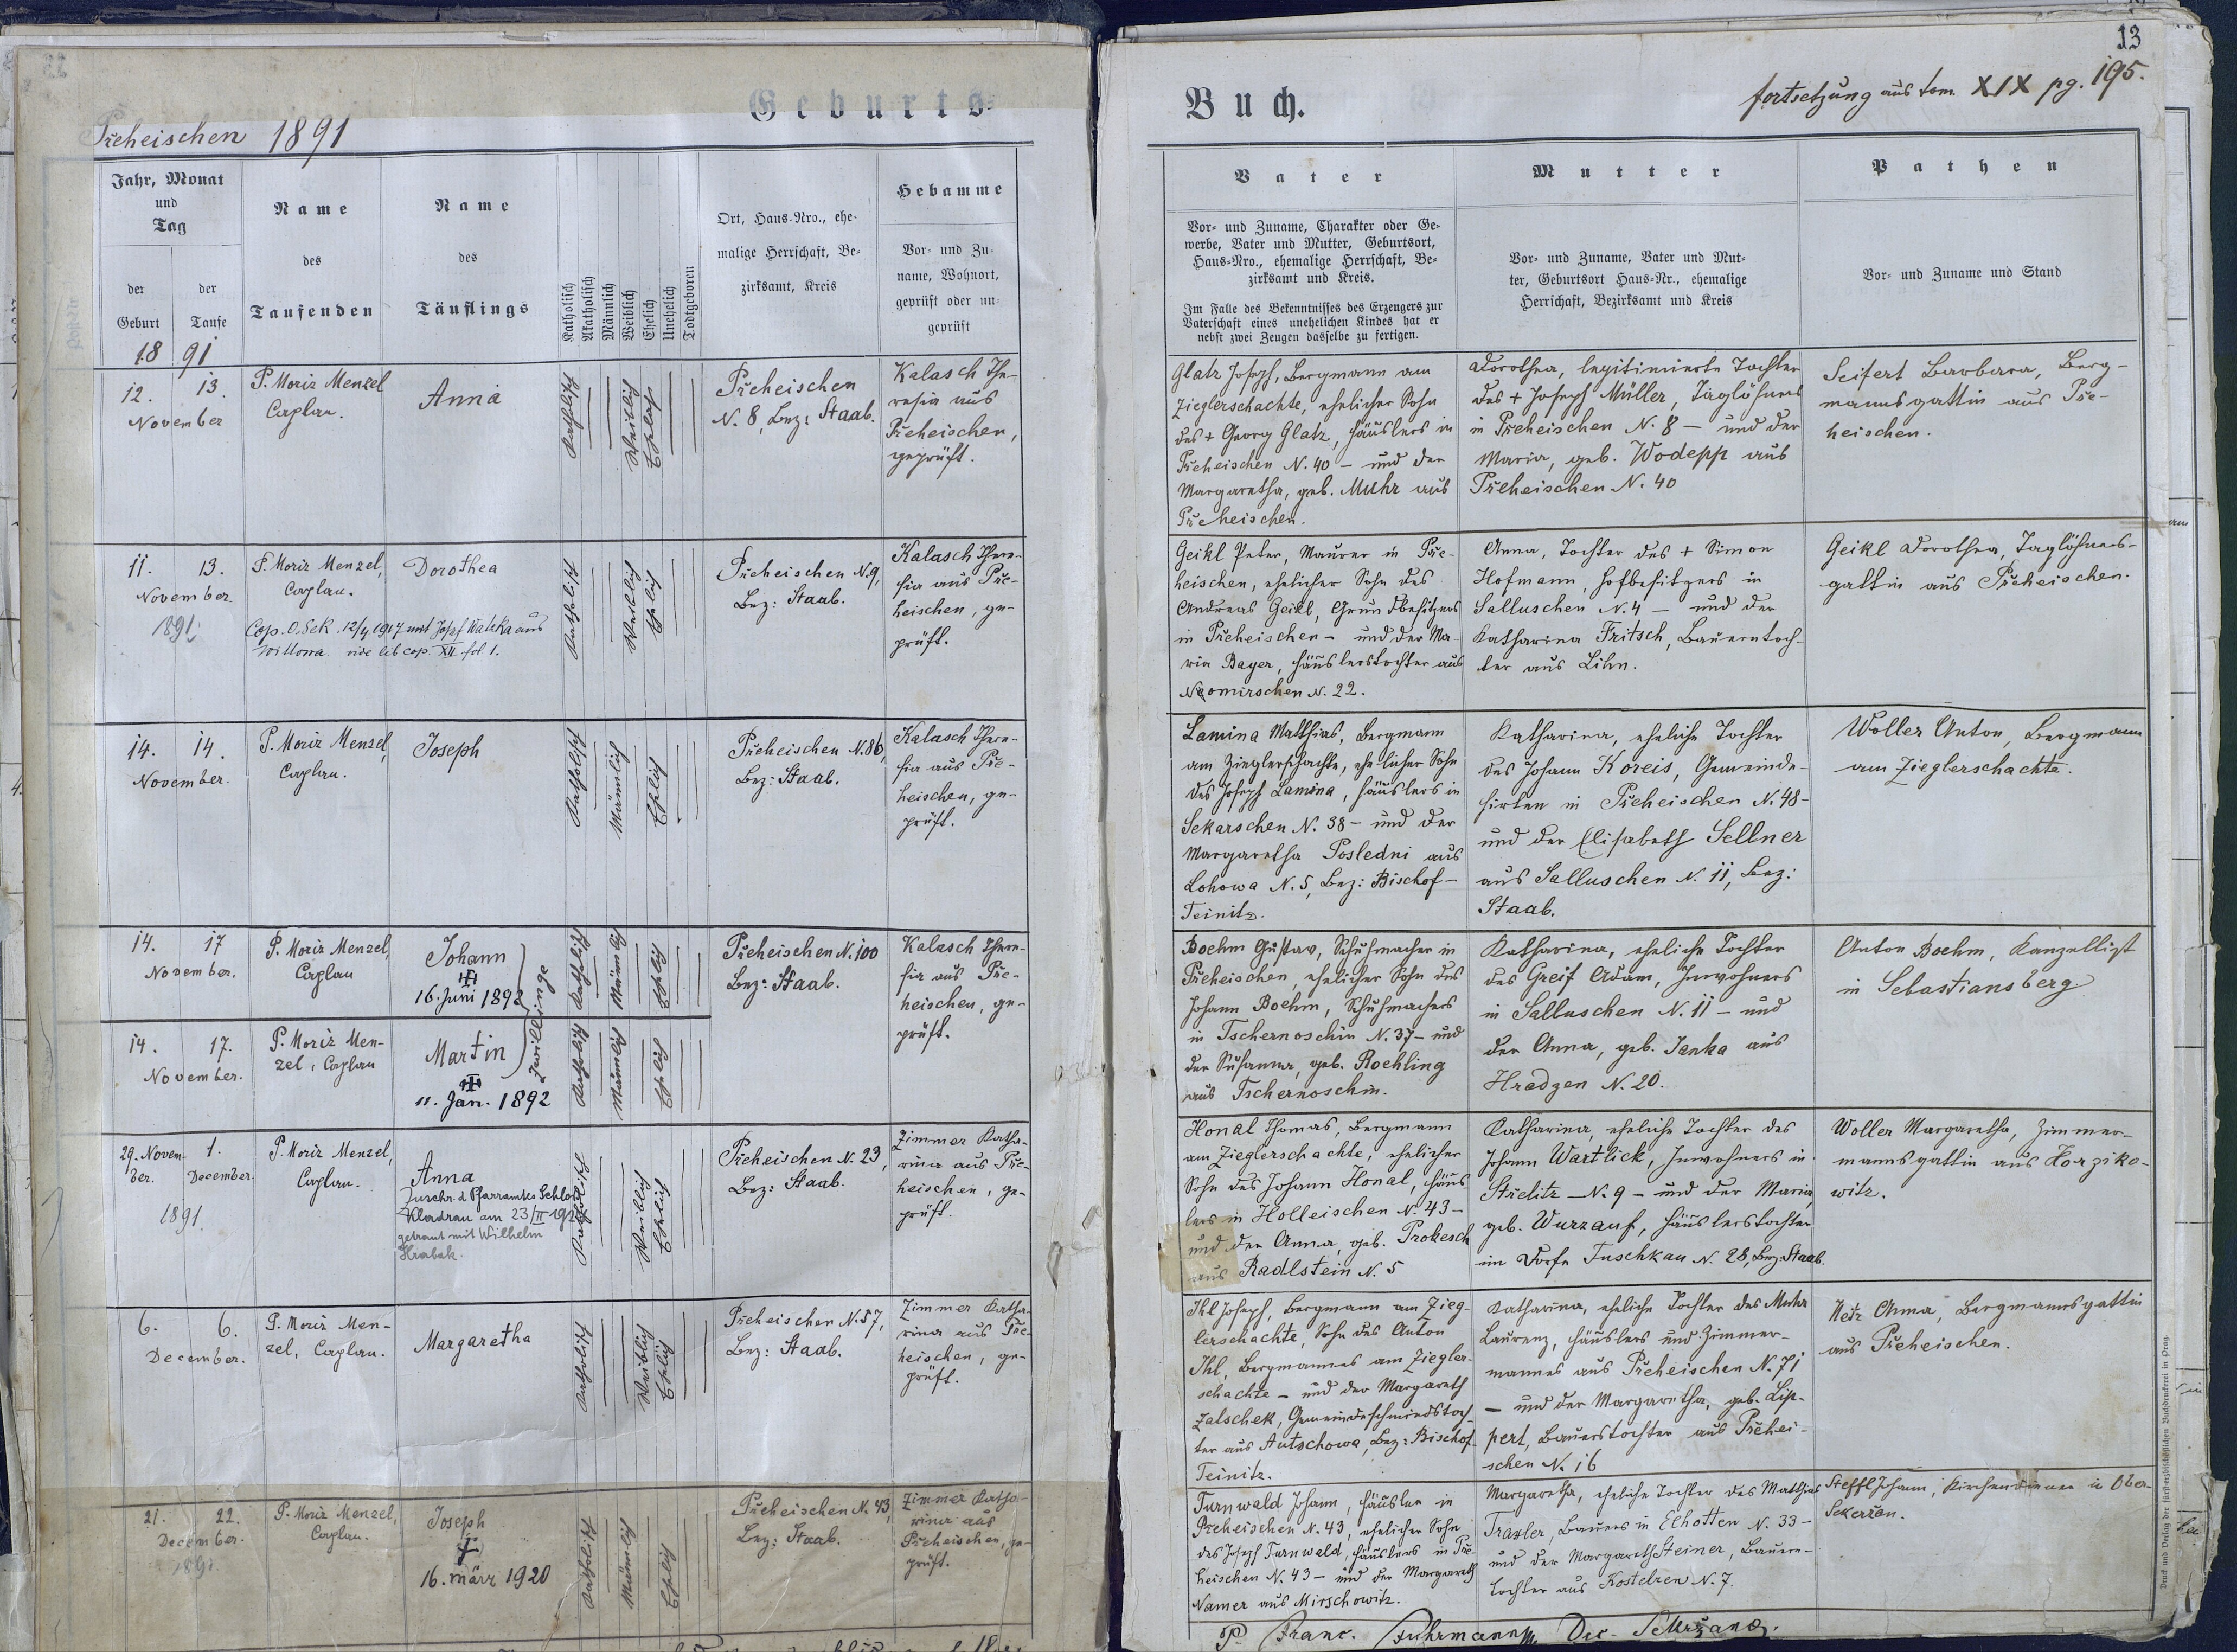 Geburts-
Přeheischen 1891
Jahr, Monat
und
Tag
der
Geburt
der
Taufe
Name
des
Taufenden
Name
des
Täuflings
Katholisch
Akatholisch
Männlich
Weiblich
Ehelich
Unehelich
Todtgeboren
Ort, Haus-Nro., ehe-
malige Herrschaft, Be-
zirksamt, Kreis
Hebamme
Vor- und Zu-
name, Wohnort,
geprüft oder un-
geprüft
18 91
12. 13.
November
P. Moriz Menzel
Caplan.
Anna
Katholisch
Weiblich
Ehelich
Přeheischen
N. 8, Bez: Staab.
Kalasch The-
resia aus
Přeheischen,
geprüft.
11. 13.
November.
1891.
P. Moriz Menzel,
Caplan.
Dorothea
Cop. O. Sek. 12/4 1917 mit Josef Watzka aus
Wittowa. vide lib cop. XII fol 1.
Katholisch
Weiblich
Ehelich
Přeheischen N. 9,
Bez: Staab.
Kalasch There-
sia aus Pře-
heischen, ge-
prüft.
14. 14.
November.
P. Moriz Menzel,
Caplan.
Joseph
Katholisch
Männlich
Ehelich
Přeheischen N. 86,
Bez: Staab.
Kalasch There-
sia aus Pře-
heischen, ge-
prüft.
14. 17
November.
P. Moriz Menzel,
Caplan
Johann
16. Juni 1892
Zwillinge
Katholisch
Männlich
Ehelich
Přeheischen N. 100
Bez: Staab.
Kalasch There-
sia aus Pře-
heischen, ge-
prüft.
14. 17.
November.
P. Moriz Men-
zel, Caplan
Martin
11. Jan. 1892
Katholisch
Männlich
Ehelich
29. Novem-
ber. 1.
December.
1891.
P. Moriz Menzel,
Caplan.
Anna
Zuschr. d Pfarramtes Schloß
Kladrau am 23/II
getraut mit Wilhelm
Hrabak.
Katholisch
Weiblich
Ehelich
Přeheischen N. 23,
Bez: Staab.
Zimmer Katha-
rina aus Pře-
heischen, ge-
prüft.
6. 6.
December.
P. Moriz Men-
zel, Caplan.
Margaretha
Katholisch
Weiblich
Ehelich
Přeheischen N. 57,
Bez: Staab.
Zimmer Katha-
rina aus Pře-
heischen, ge-
prüft.
21. 22.
December.
1891
P. Moriz Menzel,
Caplan.
Joseph
†
16. märz 1920
Katholisch
Männlich
Ehelich
Přeheischen N. 43,
Bez: Staab.
Zimmer Katha-
rina aus
Přeheischen, ge-
prüft.
13
Buch.
fortsetzung aus tom. XIX pg. 195.
Vater
Vor- und Zuname, Charakter oder Ge-
werbe, Vater und Mutter, Geburtsort,
Haus-Nro., ehemalige Herrschaft, Be-
zirksamt und Kreis.
Im Falle des Bekenntnisses des Erzeugers zur
Vaterschaft eines unehelichen Kindes hat er
nebst zwei Zeugen dasselbe zu fertigen.
Mutter
Vor- und Zuname, Vater und Mut-
ter, Geburtsort Haus-Nr., ehemalige
Herrschaft, Bezirksamt und Kreis
Pathen
Vor- und Zuname und Stand
Glatz Joseph, Bergmann am
Zieglerschachte, ehelicher Sohn
des + Georg Glatz, Häuslers in
Přeheischen N. 40 - und der
Margaretha, geb. Muhr aus
Přeheischen.
Dorothea, legitimierte Tochter
des + Joseph Müller, Taglöhners
in Přeheischen N. 8 - und der
Maria, geb. Wodepp aus
Přeheischen N. 40
Seifert Barbara, Berg-
mannsgattin aus Pře-
heischen.
Geikl Peter, Maurer in Pře-
heischen, ehelicher Sohn des
Andreas Geikl, Grundbesitzers
in Přeheischen - und der Ma-
ria Bayer, Häuslerstochter aus
Nromirschen N. 22.
Anna, Tochter des + Simon
Hofmann, Hofbesitzers in
Salluschen N. 4 - und der
Katharina Fritsch, Bauerntoch-
ter aus Lihn.
Geikl Dorothea, Taglöhners-
gattin aus Přeheischen.
Lamina Matthias, Bergmann
am Zieglerschachte, ehelicher Sohn
des Joseph Lamina, Häuslers in
Sekarschen N. 38 - und der
Margaretha Posledni aus
Lohowa N. 5, Bez: Bischof-
Teinitz.
Katharina, eheliche Tochter
des Johann Koreis, Gemeinde-
hirten in Přeheischen N. 48-
und der Elisabeth Sellner
aus Salluschen N. 11, Bez:
Staab.
Woller Anton, Bergmann
am Zieglerschachte.
Boehm Gustav, Schuhmacher in
Přeheischen, ehelicher Sohn des
Johann Boehm, Schuhmachers
in Tschernoschin N. 37 - und
der Susanna, geb. Roehling
aus Tschernoschin.
Katharina, eheliche Tochter
des Greif Adam, Inwohners
in Salluschen N. 11 - und
der Anna, geb. Janka aus
Hradzen N. 20.
Anton Boehm, Kanzellist
in Sebastiansberg
Honal Thomas, Bergmann
am Zieglerschachte, ehelicher
Sohn des Johann Honal, Häus-
lers in Holleischen N. 43 -
und der Anna, geb. Prokesch
aus Radlstein N. 5
Katharina, eheliche Tochter des
Johann Wartlick, Inwohners in
Střelitz - N. 9 - und der Maria,
geb. Wurzauf, Häuslerstochter
im Dorfe Tuschkau N. 28, Bez: Staab.
Woller Margaretha, Zimmer-
mannsgattin aus Horziko-
witz.
Ihl Joseph, Bergmann am Zieg-
lerschachte, Sohn des Anton
Ihl, Bergmannes am Ziegler-
schachte - und der Margareth
Zalschek, Gemeindeschmiedstoch-
ter aus Autschowa, Bez: Bischof-
Teinitz.
Katharina, eheliche Tochter des Muhr
Laurenz, Häuslers und Zimmer-
mannes aus Přeheischen N. 71
- und der Margaretha, geb. Lip-
pert, Bauerstochter aus Přehei-
schen N. 16
Anna, Bergmannsgattin
aus Přeheischen.
Turnwald Johann, Häusler in
Přeheischen N. 43, ehelicher Sohn
des Joseph Turnwald, Häuslers in Pře-
heischen N. 43 - und der Margareth
Namer aus Mirschowitz.
Margaretha, eheliche Tochter des Matthias
Traxler, Bauers in Elhotten N. 33 -
und der Margareth Steiner, Bauern-
tochter aus Kostelzen N. 7.
Steffl Johann, Kirchendiener in Ober-
Sekeřan.
P. Franc. Fuhrmann, Dec. Sekržano.
Druck und Verlag der fürsterzbischöflichen Buchdruckerei in Prag.